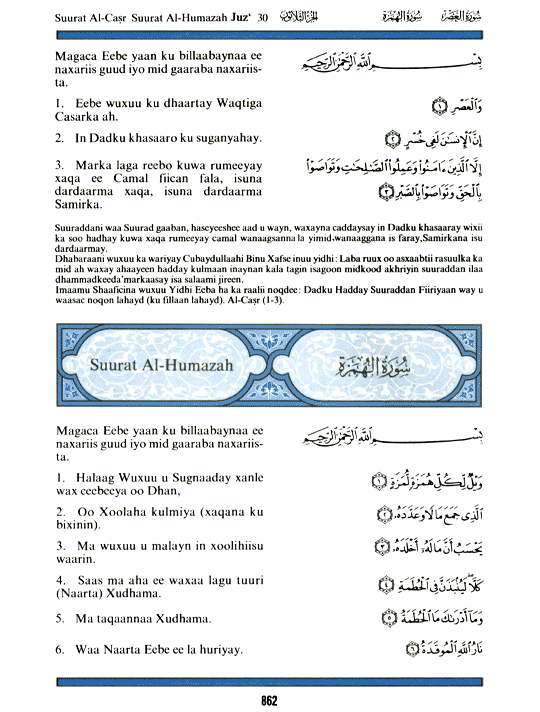 Suurat Al-Caṣr Suurat Al-Humazah Juz' 30 الجزء الثلاثون سورة الهمزة سورة العصر
Magaca Eebe yaan ku billaabaynaa ee
naxariis guud iyo mid gaaraba naxariis-
ta.
بِسْمِ اللَّهِ الرَّحْمَٰنِ الرَّحِيمِ
1. Eebe wuxuu ku dhaartay Waqtiga
Casarka ah.
وَالْعَصْرِ ١
2. In Dadku khasaaro ku suganyahay.
إِنَّ الْإِنسَانَ لَفِي خُسْرٍ ٢
3. Marka laga reebo kuwa rumeeyay
xaqa ee Camal fiican fala, isuna
dardaarma xaqa, isuna dardaarma
Samirka.
إِلَّا الَّذِينَ ءَامَنُوا وَعَمِلُوا الصَّالِحَاتِ وَتَوَاصَوْا
بِالْحَقِّ وَتَوَاصَوْا بِالصَّبْرِ ٣
Suuraddani waa Suurad gaaban, haseyeeshee aad u wayn, waxayna caddaysay in Dadku khasaaray wixii
ka soo hadhay kuwa xaqa rumeeyay camal wanaagsanna la yimid,wanaaggana is faray,Samirkana isu
dardaarmay.
Dhabaraani wuxuu ka wariyay Cubaydullaahi Binu Xafse inuu yidhi: Laba ruux oo asxaabtii rasuulka ka
mid ah waxay ahaayeen hadday kulmaan inaynan kala tagin isagoon midkood akhriyin suuraddan ilaa
dhammadkeeda'markaasay isa salaami jireen.
Imaamu Shaaficina wuxuu Yidhi Eeba ha ka raalii noqdee: Dadku Hadday Suuraddan Fiiriyaan way u
waasac noqon lahayd (ku fillaan lahayd). Al-Caṣr (1-3).
Suurat Al-Humazah سورة الهمزة
Magaca Eebe yaan ku billaabaynaa ee
naxariis guud iyo mid gaaraba naxariis-
ta.
بِسْمِ اللَّهِ الرَّحْمَٰنِ الرَّحِيمِ
1. Halaag Wuxuu u Sugnaaday xanle
wax ceebeeya oo Dhan,
وَيْلٌ لِّكُلِّ هُمَزَةٍ لُّمَزَةٍ ١
2. Oo Xoolaha kulmiya (xaqana ku
bixinin).
الَّذِي جَمَعَ مَالًا وَعَدَّدَهُ ٢
3. Ma wuxuu u malayn in xoolihiisu
waarin.
يَحْسَبُ أَنَّ مَالَهُ أَخْلَدَهُ ٣
4. Saas ma aha ee waxaa lagu tuuri
(Naarta) Xudhama.
كَلَّا لَيُنبَذَنَّ فِي الْحُطَمَةِ ٤
5. Ma taqaannaa Xudhama.
وَمَا أَدْرَاكَ مَا الْحُطَمَةُ ٥
6. Waa Naarta Eebe ee la huriyay.
نَارُ اللَّهِ الْمُوقَدَةُ ٦
862